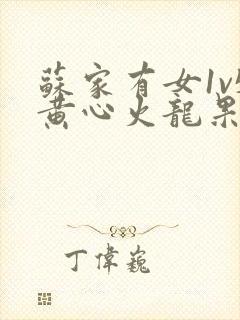 蘇家有女1v
黄心火龍果
丁偉巍